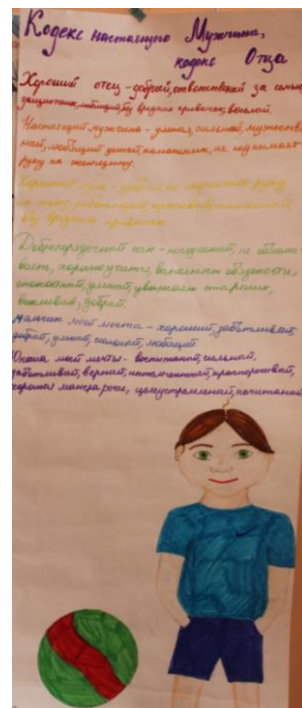 Кодекс настоящего Мужчины,
кодекс Отца
Хороший отец - добрый, ответственный за семью,
защитник, любящий, без вредных привычек, веселой.
Настоящий мужчина - умный, сильный, мужествен
ный, любящий детей, помощник, не поднимает
руку на женщину.
Хороший муж - добрый, не поднимает руку
на жену, работящий,
без вредных привычек
Добропорядочный сын - послушный, не обманы-
вает, хорошо учится, выполняет обязанности,
спокойный, умный, уважает старших,
вежливый, добрый.
Мальчик моей мечты - хороший, заботливый,
добрый, умный, сильный, любящий
Юноша моей мечты - воспитанный, сильный,
заботливый, верный,
хорошая манера речи, целеустремленный, начитанный